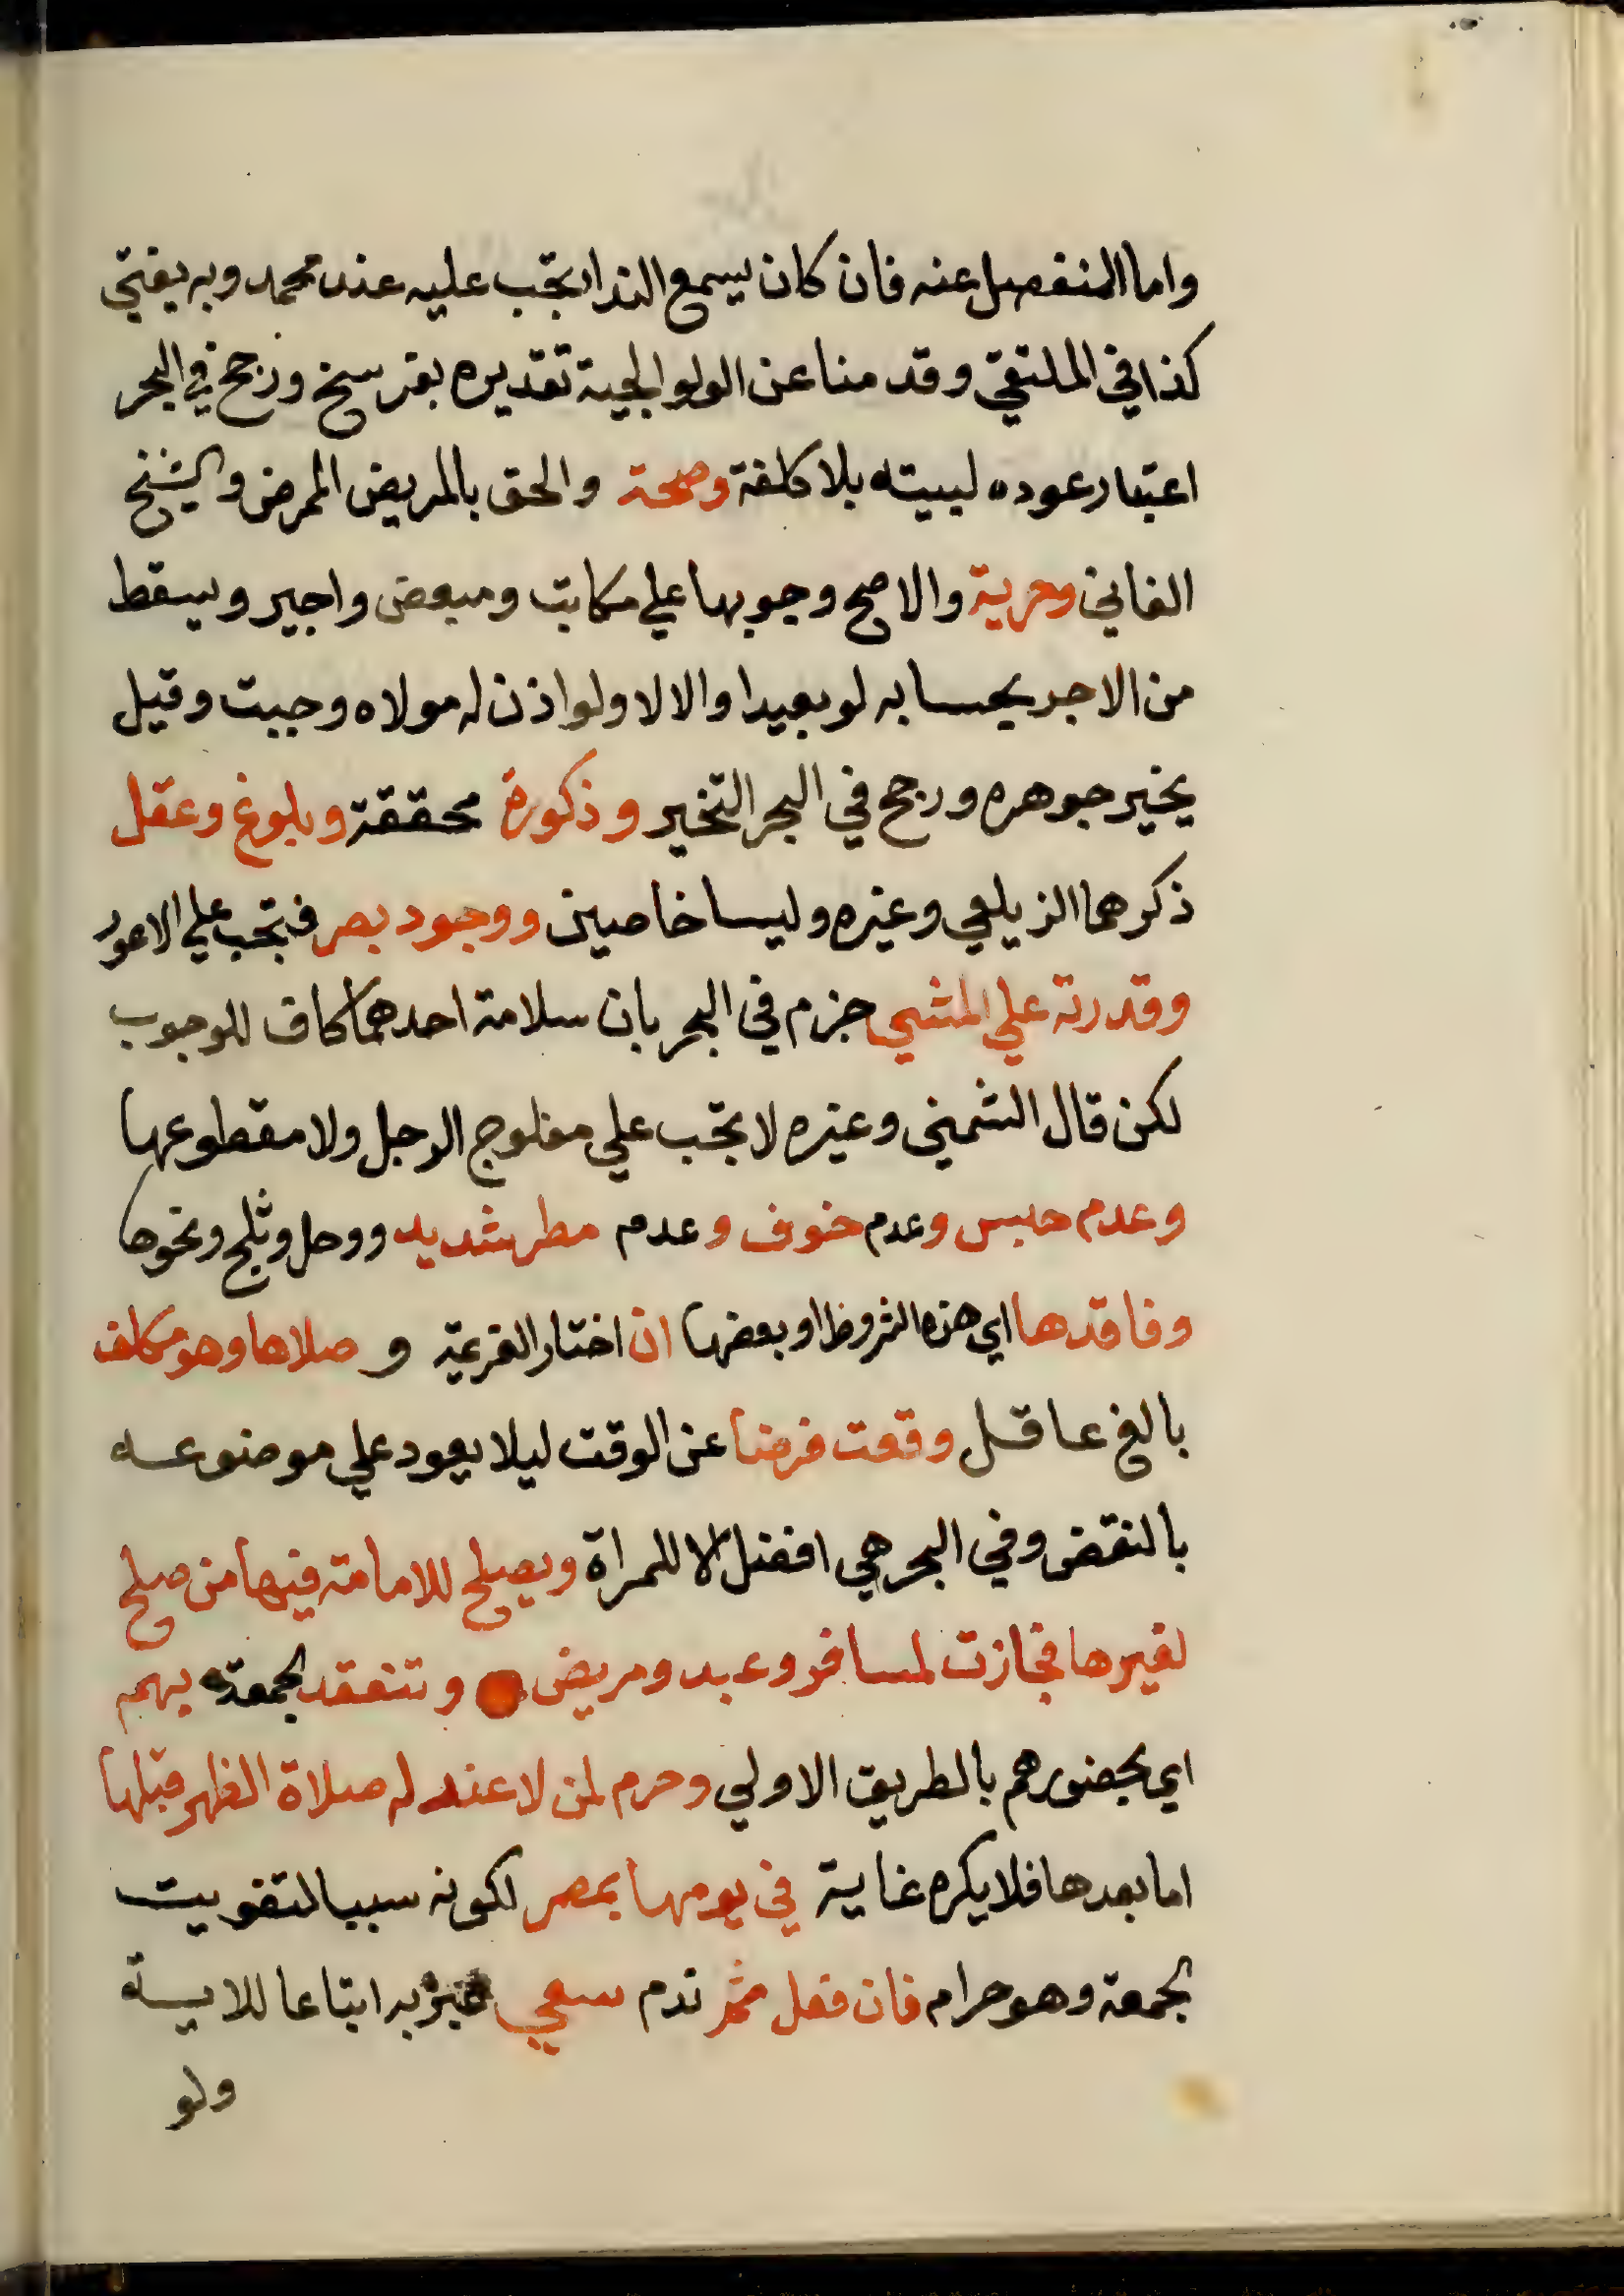 واما المنفصل عنه فان كان يسمع الندا تجب عليه عند محمد وبه يفتي
كذا في الملتقي وقد منا عن الولوالجية تقديره بفرسخ ورجح في البحر
اعتبار عوده لبيته بلا كلفة وصحة والحق بالمريض الممرض والشيخ
الفاني وحرية والاصح وجوبها علي مكاتب ومبعض واجير ويسقط
من الاجر بحسابه لو بعيدا والا لا ولو اذن له مولاه وجبت وقيل
يخير جوهره ورجح في البحر التخير وذكورة محققة وبلوغ وعقل
ذكرهما الزيلعي وغيره وليسا خاصين ووجود بصر فتجب علي الاعور
وقدرته علي المشي جزم في البحر بان سلامة احدهما كاف للوجوب
لكن قال الشمني وغيره لا تجب علي مفلوج الرجل ولا مقطوعها
وعدم حبس وعدم خوف وعدم مطر شديد ووحل وثلج ونحوها
وفاقدها اي هذه الشروط او بعضها ان اختار العزيمة و صلاها وهو مكلف
بالغ عاقل وقعت فرضا عن الوقت ليلا يعود علي موضوعه
بالنقض وفي البحر هي افضل الا للمراة ويصلح للامامة فيها من صلح
لغيرها فجازت لمسافر وعبد ومريض وتنعقد الجمعة بهم
اي بحضورهم بالطريق الاولي وحرم لمن لا عذر له صلاة الظهر قبلها
اما بعدها فلا يكره غاية في يومها بمصر لكونه سببا لتفويت
الجمعة وهو حرام فان فعل ثم ندم سعي عبر به اتباعا للاية
ولو